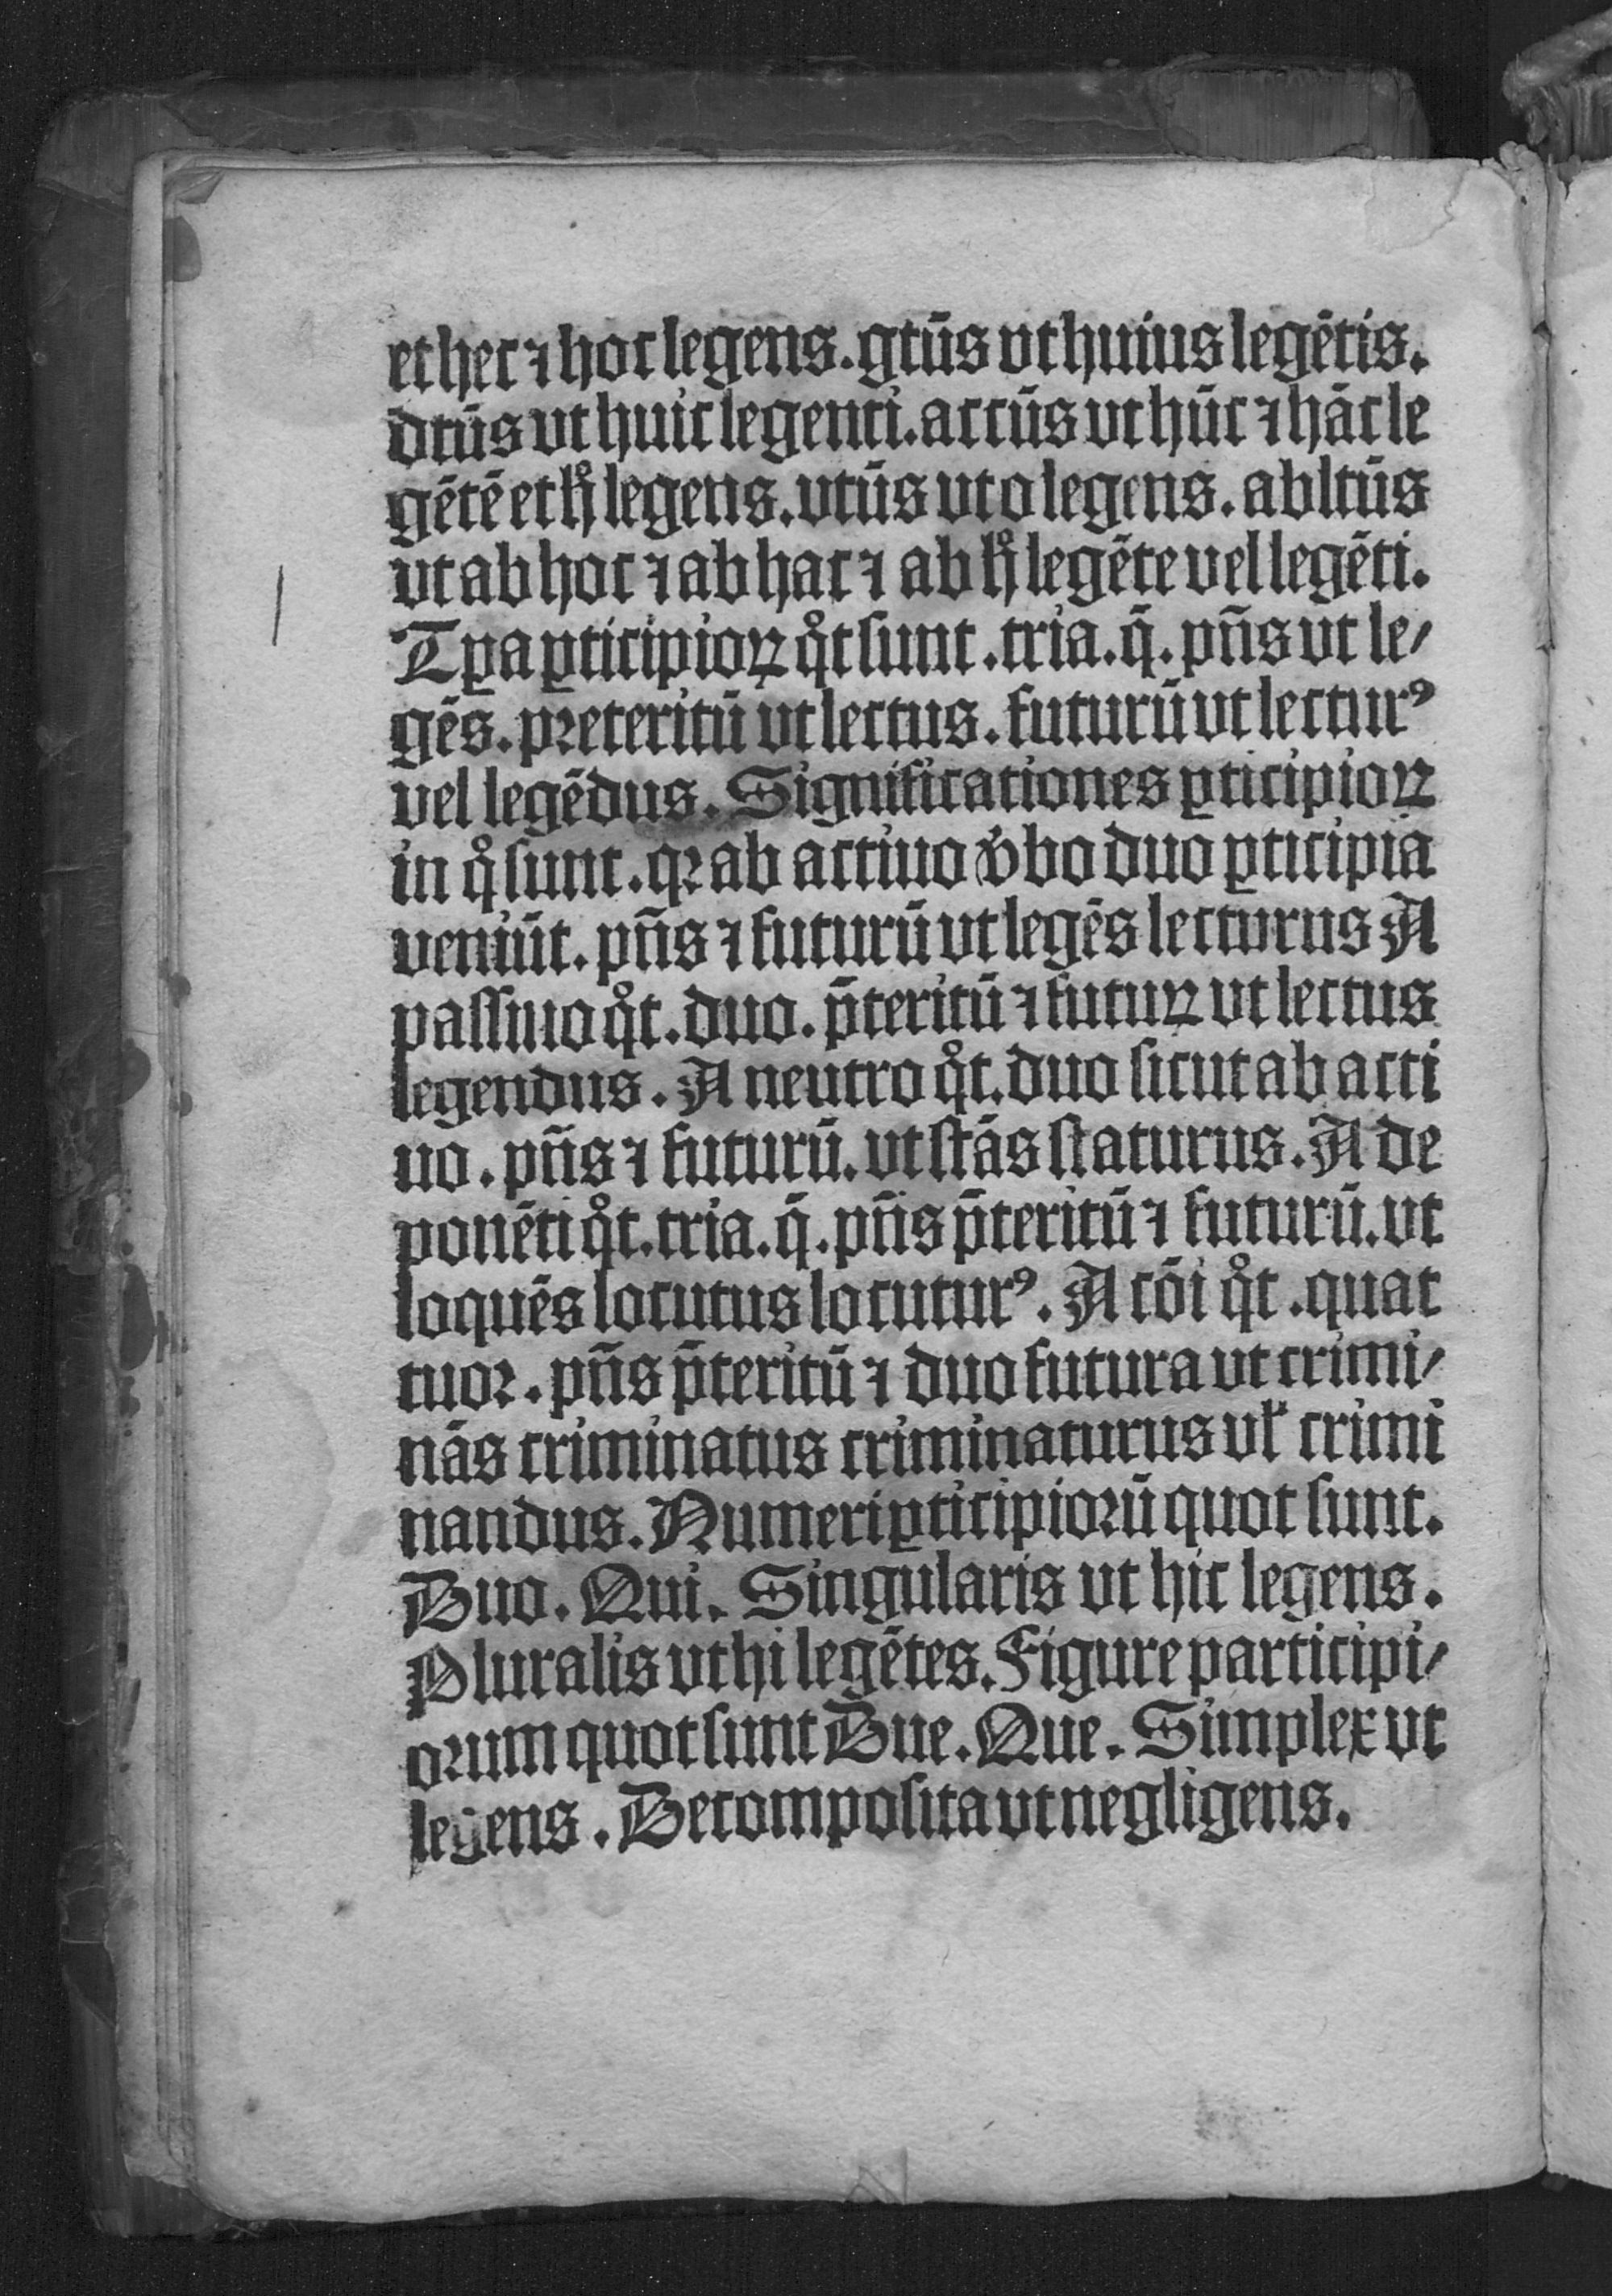 et hec ⁊ hoc legens. gtūs vt huius legētis.
dtūs vt huic legenti. accūs vt hūc ⁊ hāc le
gētē et hͦ legens. vtūs vt o legens. abltūs
vt ab hoc ⁊ ab hac ⁊ ab hͦ legēte vel legēti.
Tꝑa ꝑticipioꝝ qͦt sunt. tria. q̄. pn̄s vt le/
gēs. preteritū vt lectus. futurū vt lecturꝰ
vel legēdus. Significationes ꝑticipioꝝ
in qͦ sunt. qꝛ ab actiuo v̓bo duo ꝑticipia
veniūt. pn̄s ⁊ futurū vt legēs lecturus A
passiuo qͦt. duo. p̄teritū ⁊ futuꝝ vt lectus
legendus. A neutro qͦt. duo sicut ab acti
uo. pn̄s ⁊ futurū. vt stās staturus. A de
ponēti qͦt. tria. q̄. pn̄s p̄teritū ⁊ futurū. vt
loquēs locutus locuturꝰ. A cōi qͦt. quat
tuor. pn̄s p̄teritū ⁊ duo futura vt crimi/
nās criminatus criminaturus vl̓ crimi
nandus. Numeri ꝑticipiorū quot sunt.
Duo. Qui. Singularis vt hic legens.
Pluralis vt hi legētes. Figure participi/
orum quot sunt Due. Que. Simplex vt
legens. Decomposita vt negligens.